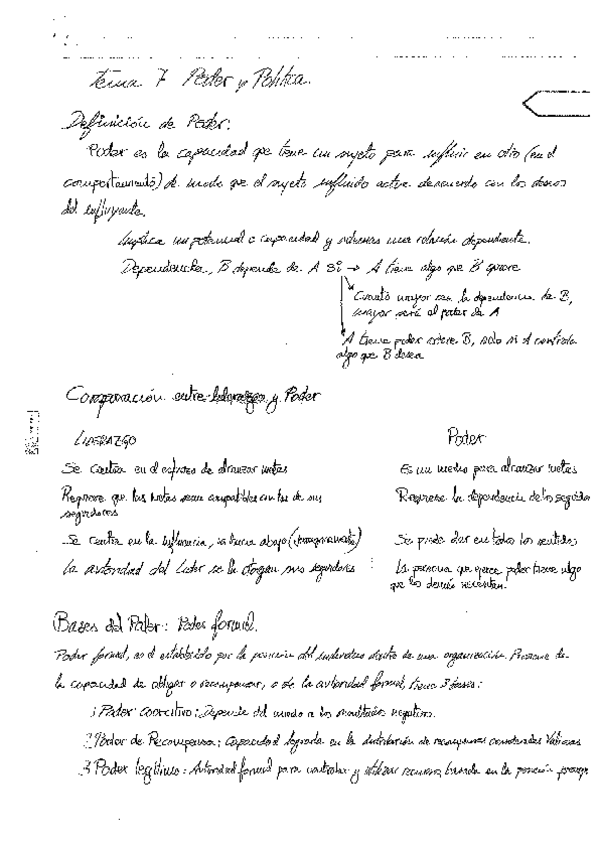 Tema 7 Poder y Política.
Definición de Poder:
Poder es la capacidad que tiene un sujeto para influir en otro (en el
comportamiento) de modo que el sujeto influido actue deacuerdo con los deseos
del influyente.
Implica un potencial o capacidad y además una relación dependiente.
Dependencia, B depende de A si → A tiene algo que B quiere
Cuanto mayor sea la dependencia de B,
mayor será el poder de A
A tiene poder sobre B, solo si A controla
algo que B desea
Comparación entre liderazgo y Poder
LIDERAZGO
Poder
Se centra en el esfuerzo de alcanzar metas
Es un medio para alcanzar metas
Requiere que las metas sean compatibles con las de sus
seguidores
Requiere la dependencia de los seguidor
Se centra en la influencia, hacia abajo
Se puede dar en todos los sentidos
La autoridad del Lider se la otorgan sus seguidores
La persona que ejerce poder tiene algo
que los demás necesitan.
Bases del Poder: Poder formal.
Poder formal, es el establecido por la posición del individuo dentro de una organización. Proviene de
la capacidad de obligar o recompensar, o de la autoridad formal, tiene 3 bases:
1 Poder coercitivo: Depende del miedo a los resultados negativos.
2 Poder de Recompensa: Capacidad lograda en la distribución de recompensas consideradas Valiosas
3 Poder legítimo: Autoridad formal para controlar y utilizar recursos, basada en la posición